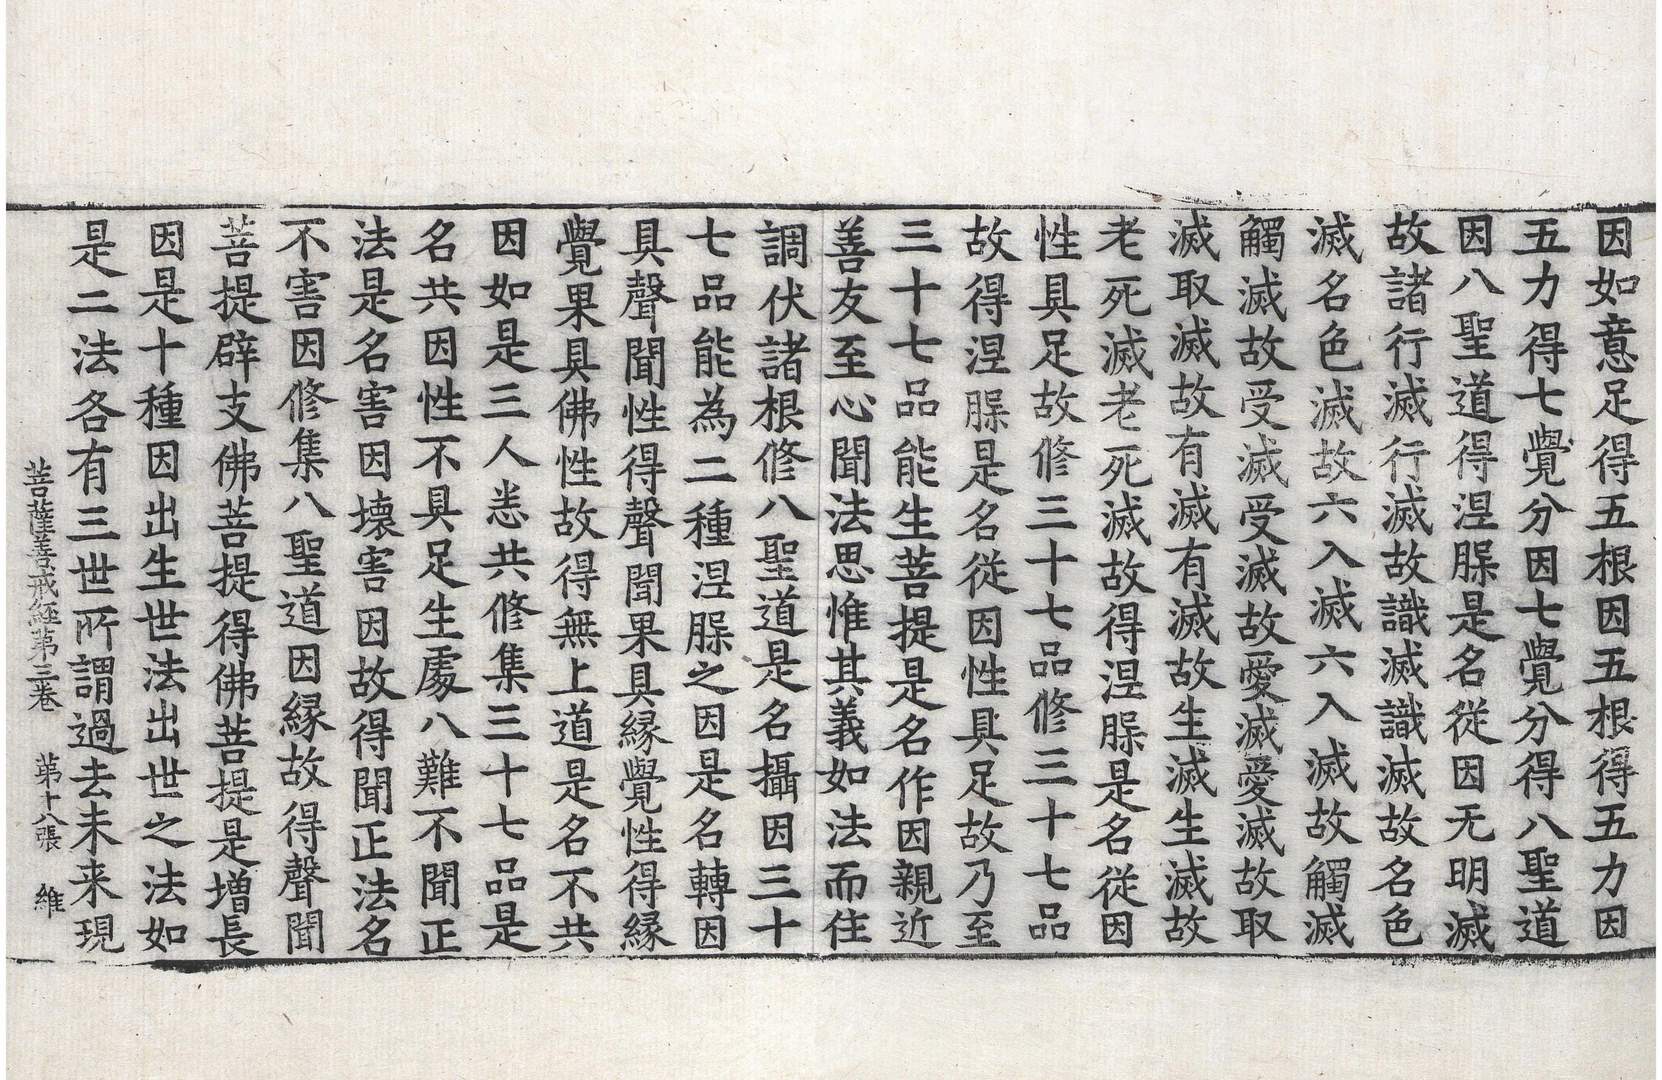 因如意足得五根因五根得五力因
五力得七覺分因七覺分得八聖道
因八聖道得涅槃是名從因无明滅
故諸行滅行滅故識滅識滅故名色
滅名色滅故六入滅六入滅故觸滅
觸滅故受滅受滅故愛滅愛滅故取
滅取滅故有滅有滅故生滅生滅故
老死滅老死滅故得涅槃是名從因
性具足故修三十七品修三十七品
故得涅槃是名從因性具足故乃至
三十七品能生菩提是名作因親近
善友至心聞法思惟其義如法而住
調伏諸根修八聖道是名攝因三十
七品能為二種涅槃之因是名轉因
具聲聞性得聲聞果具緣覺性得緣
覺果具佛性故得無上道是名不共
因如是三人悉共修集三十七品是
名共因性不具足生處八難不聞正
法是名害因壞害因故得聞正法名
不害因修集八聖道因緣故得聲聞
菩提辟支佛菩提得佛菩提是增長
因是十種因出生世法出世之法如
是二法各有三世所謂過去未來現
菩薩善戒經第三卷　第十八張　維